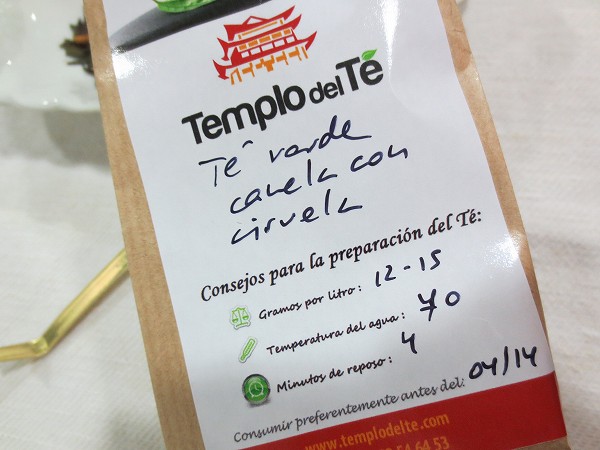 Templo del Té
Té verde
canela con
ciruela
Consejos para la preparación del Té:
Gramos por litro: 12-15
Temperatura del agua: 70
Minutos de reposo: 4
Consumir preferentemente antes del: 04/14
www.templodelte.com
54 64 53